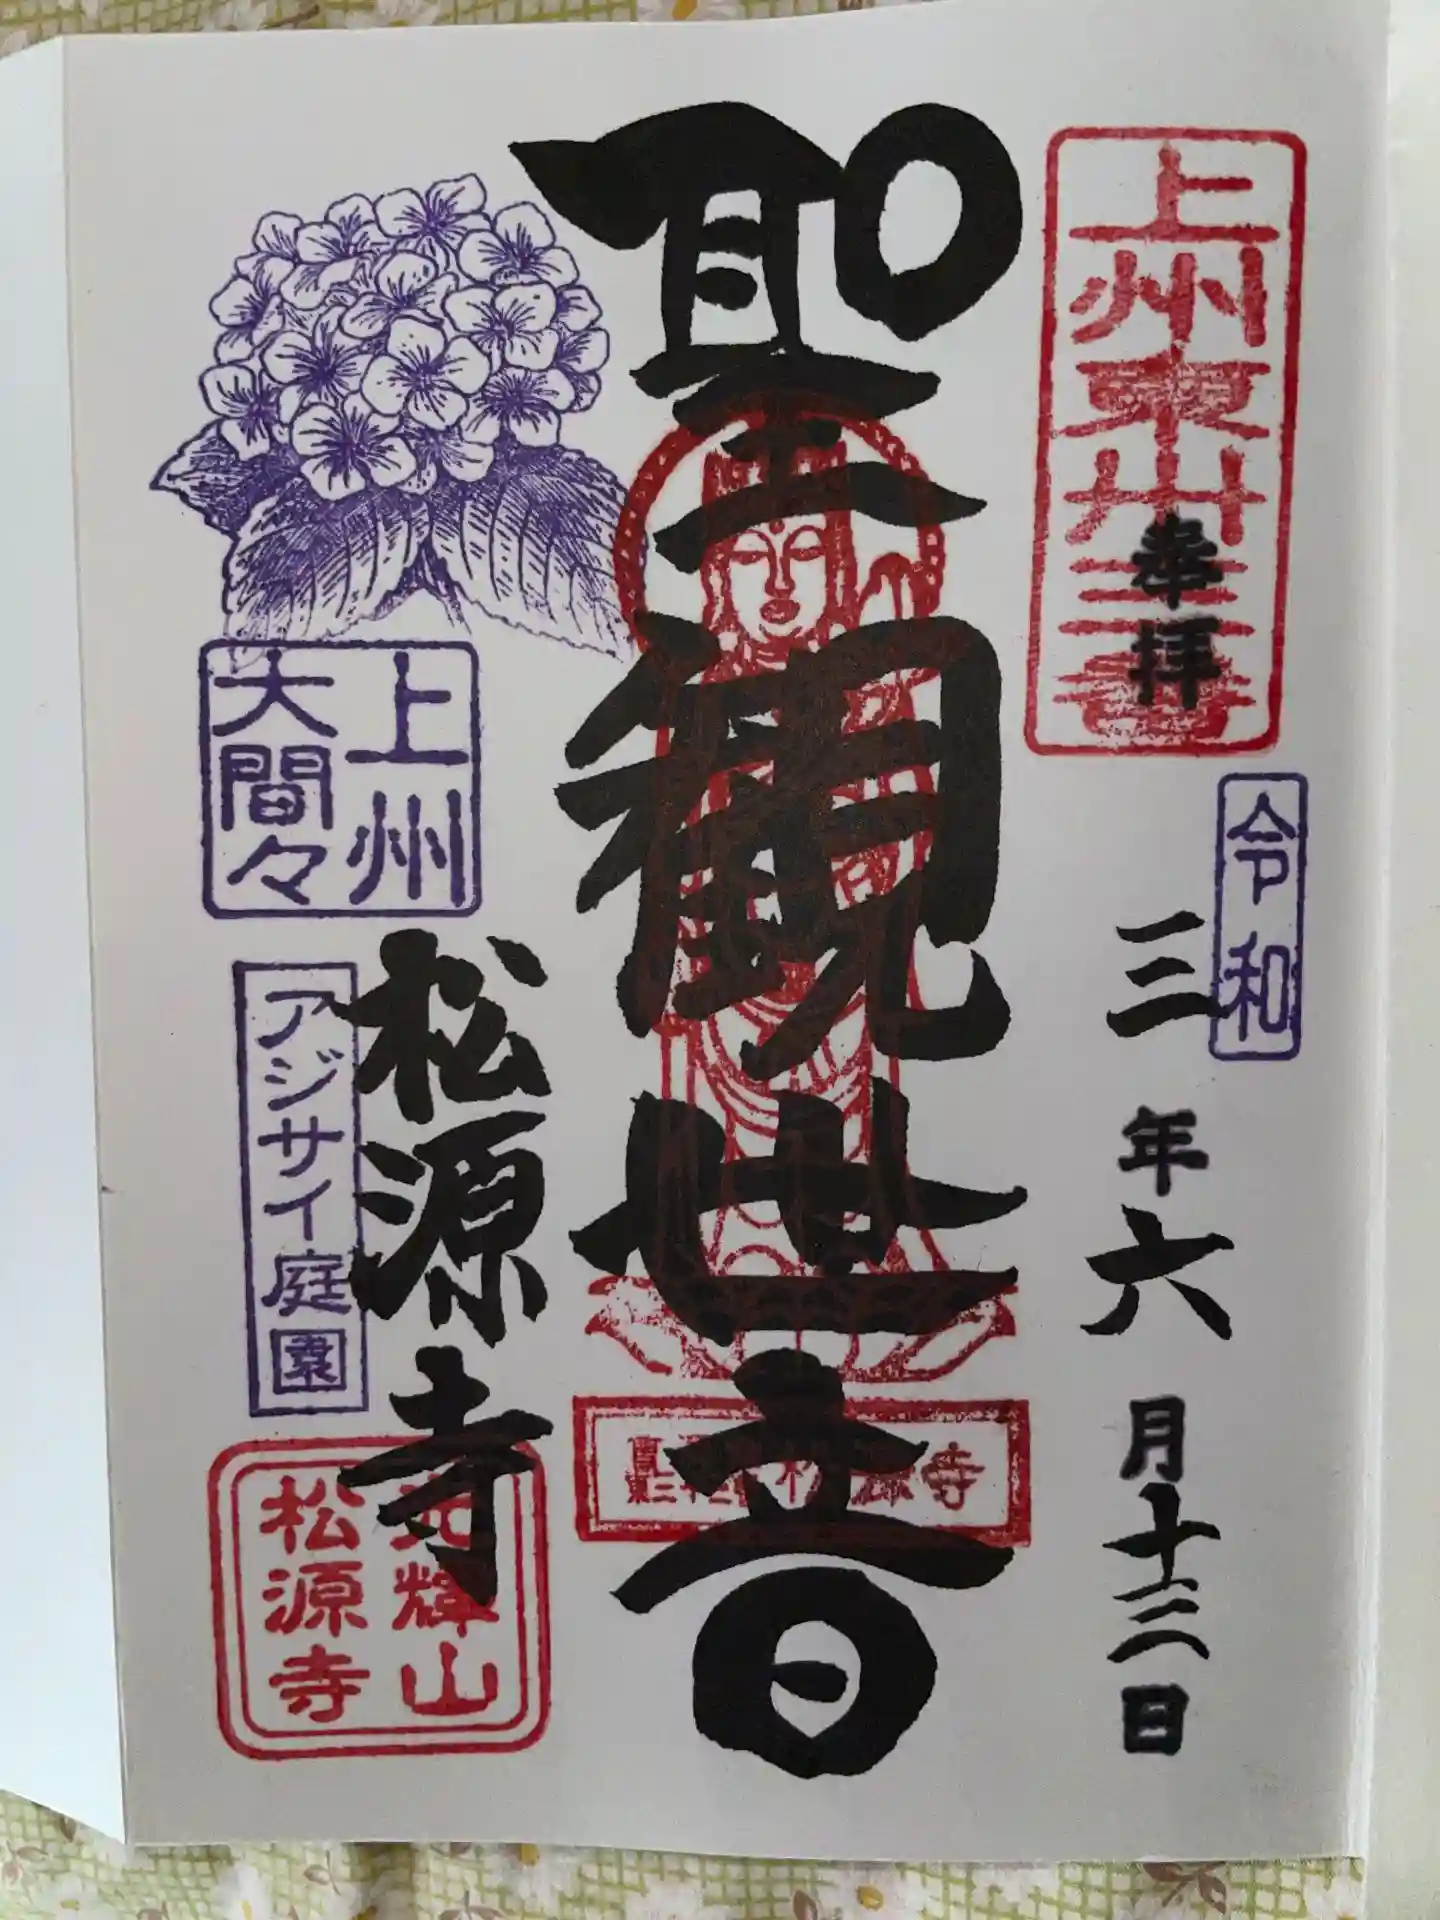 上州東卅三番
奉拝
令和
三年六月十二日
聖観世音
寺
上州
大間々
アジサイ庭園
松源寺
光輝山
松源寺